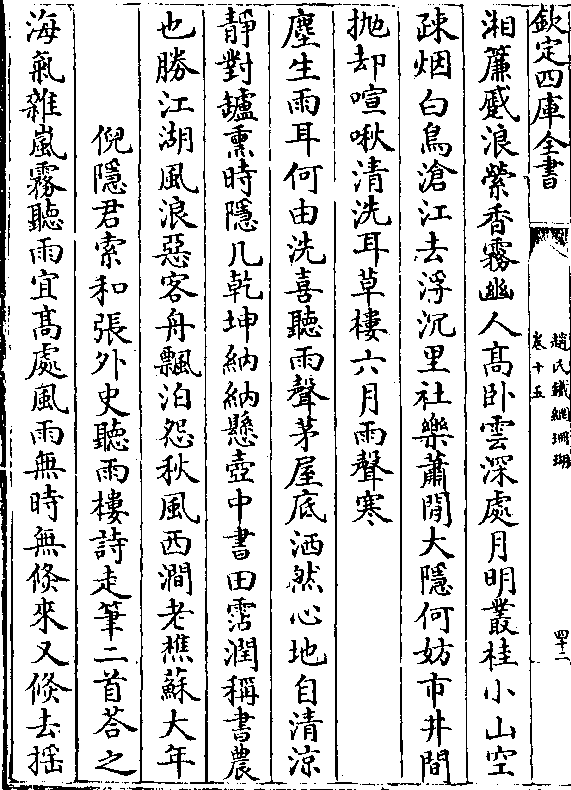 欽定四庫全書
趙氏鐵網珊瑚
卷十五
四十二
湘簾蹙浪縈香霧幽人高卧雲深處月明叢桂小山空
疎烟白鳥滄江去浮沉里社樂蕭閒大隱何妨市井間
抛却喧啾清洗耳草樓六月雨聲寒
塵生雨耳何由洗喜聽雨聲茅屋底洒然心地自清涼
靜對鑪熏時隱几乾坤納納懸壺中書田霑潤稱書農
也勝江湖風浪惡客舟飄泊怨秋風西澗老樵蘇大年
倪隱君索和張外史聽雨樓詩走筆二首荅之
海氣雜嵐霧聽雨宜髙處風雨無時無倐來又倐去揺